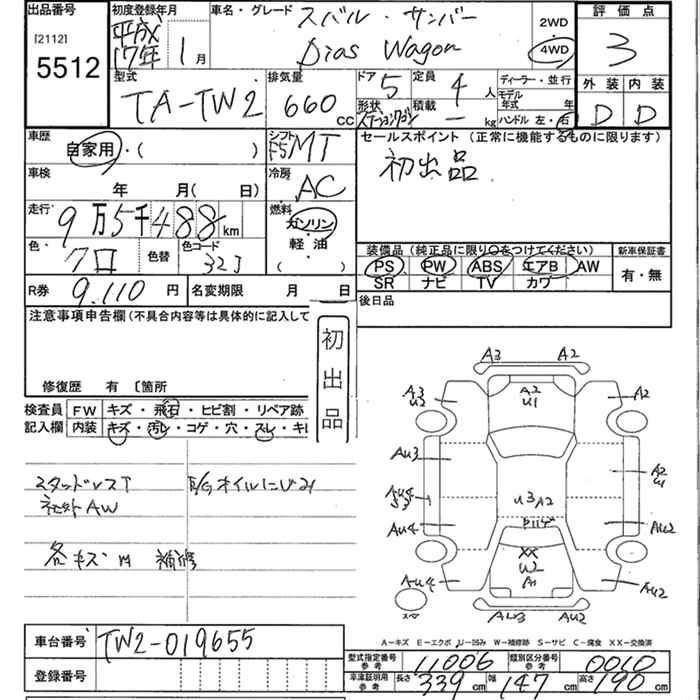 出品番号
[2112]
5512
初度登録年月
平成
17年 1月
車名・グレード
スバル・サンバー
Dias Wagon
2WD
4WD
評価点
3
外装 内装
D D
型式
TA-TW2
排気量
660
CC
ドア
5
定員
4人
形状
ステーションワゴン
積載
― kg
ディーラー・並行
モデル年式 年
ハンドル 左・右
車歴
自家用・( )
シフト
F5 MT
車検
年 月( 日)
冷房
AC
走行
9万5千488km
燃料
ガソリン
・
軽油
( )
色
色替
色コード
セールスポイント(正常に機能するものに限ります)
初出品
装備品(純正品に限り〇をつけてください)
PS PW ABS エアB AW
SR ナビ TV カワ
新車保証書
有・無
R券
9.110円
名変期限 月 日
後日品
注意事項申告欄(不具合内容等は具体的に記入して
修復歴 有 〔箇所
初出品
検査員
記入欄
FW
キズ・飛石・ヒビ割・リペア跡
内装
キズ・汚レ・コゲ・穴・スレ・キ
スタッドレスT
社外AW
E/Gオイルにじみ
各キズ凹 補修
A3 A2
A3
U2
A2
U1
A2
Au3
A2
U1
Au4
S3
U3 A2
Au4
Au2
XX
W2
A1
Au4
Au2
Au3 Au2
A-キズ E-エクボ U-凹み W-補修跡 S-サビ C-腐食 XX-交換済
車台番号
TW2-019655
登録番号
型式指定番号
参考
11006
類別区分番号
参考
0010
車庫証明用
参考
長さ 339cm 幅 147cm 高さ 190cm